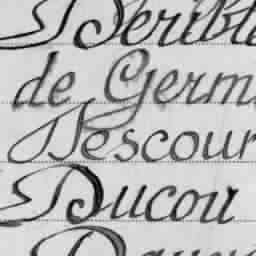 Deribl
de Germ
Descour
Ducou